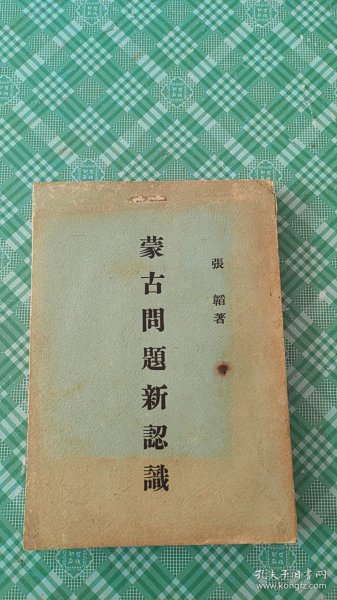 張韜著
蒙古問題新認識
孔夫子旧书网
www.kongfz.com